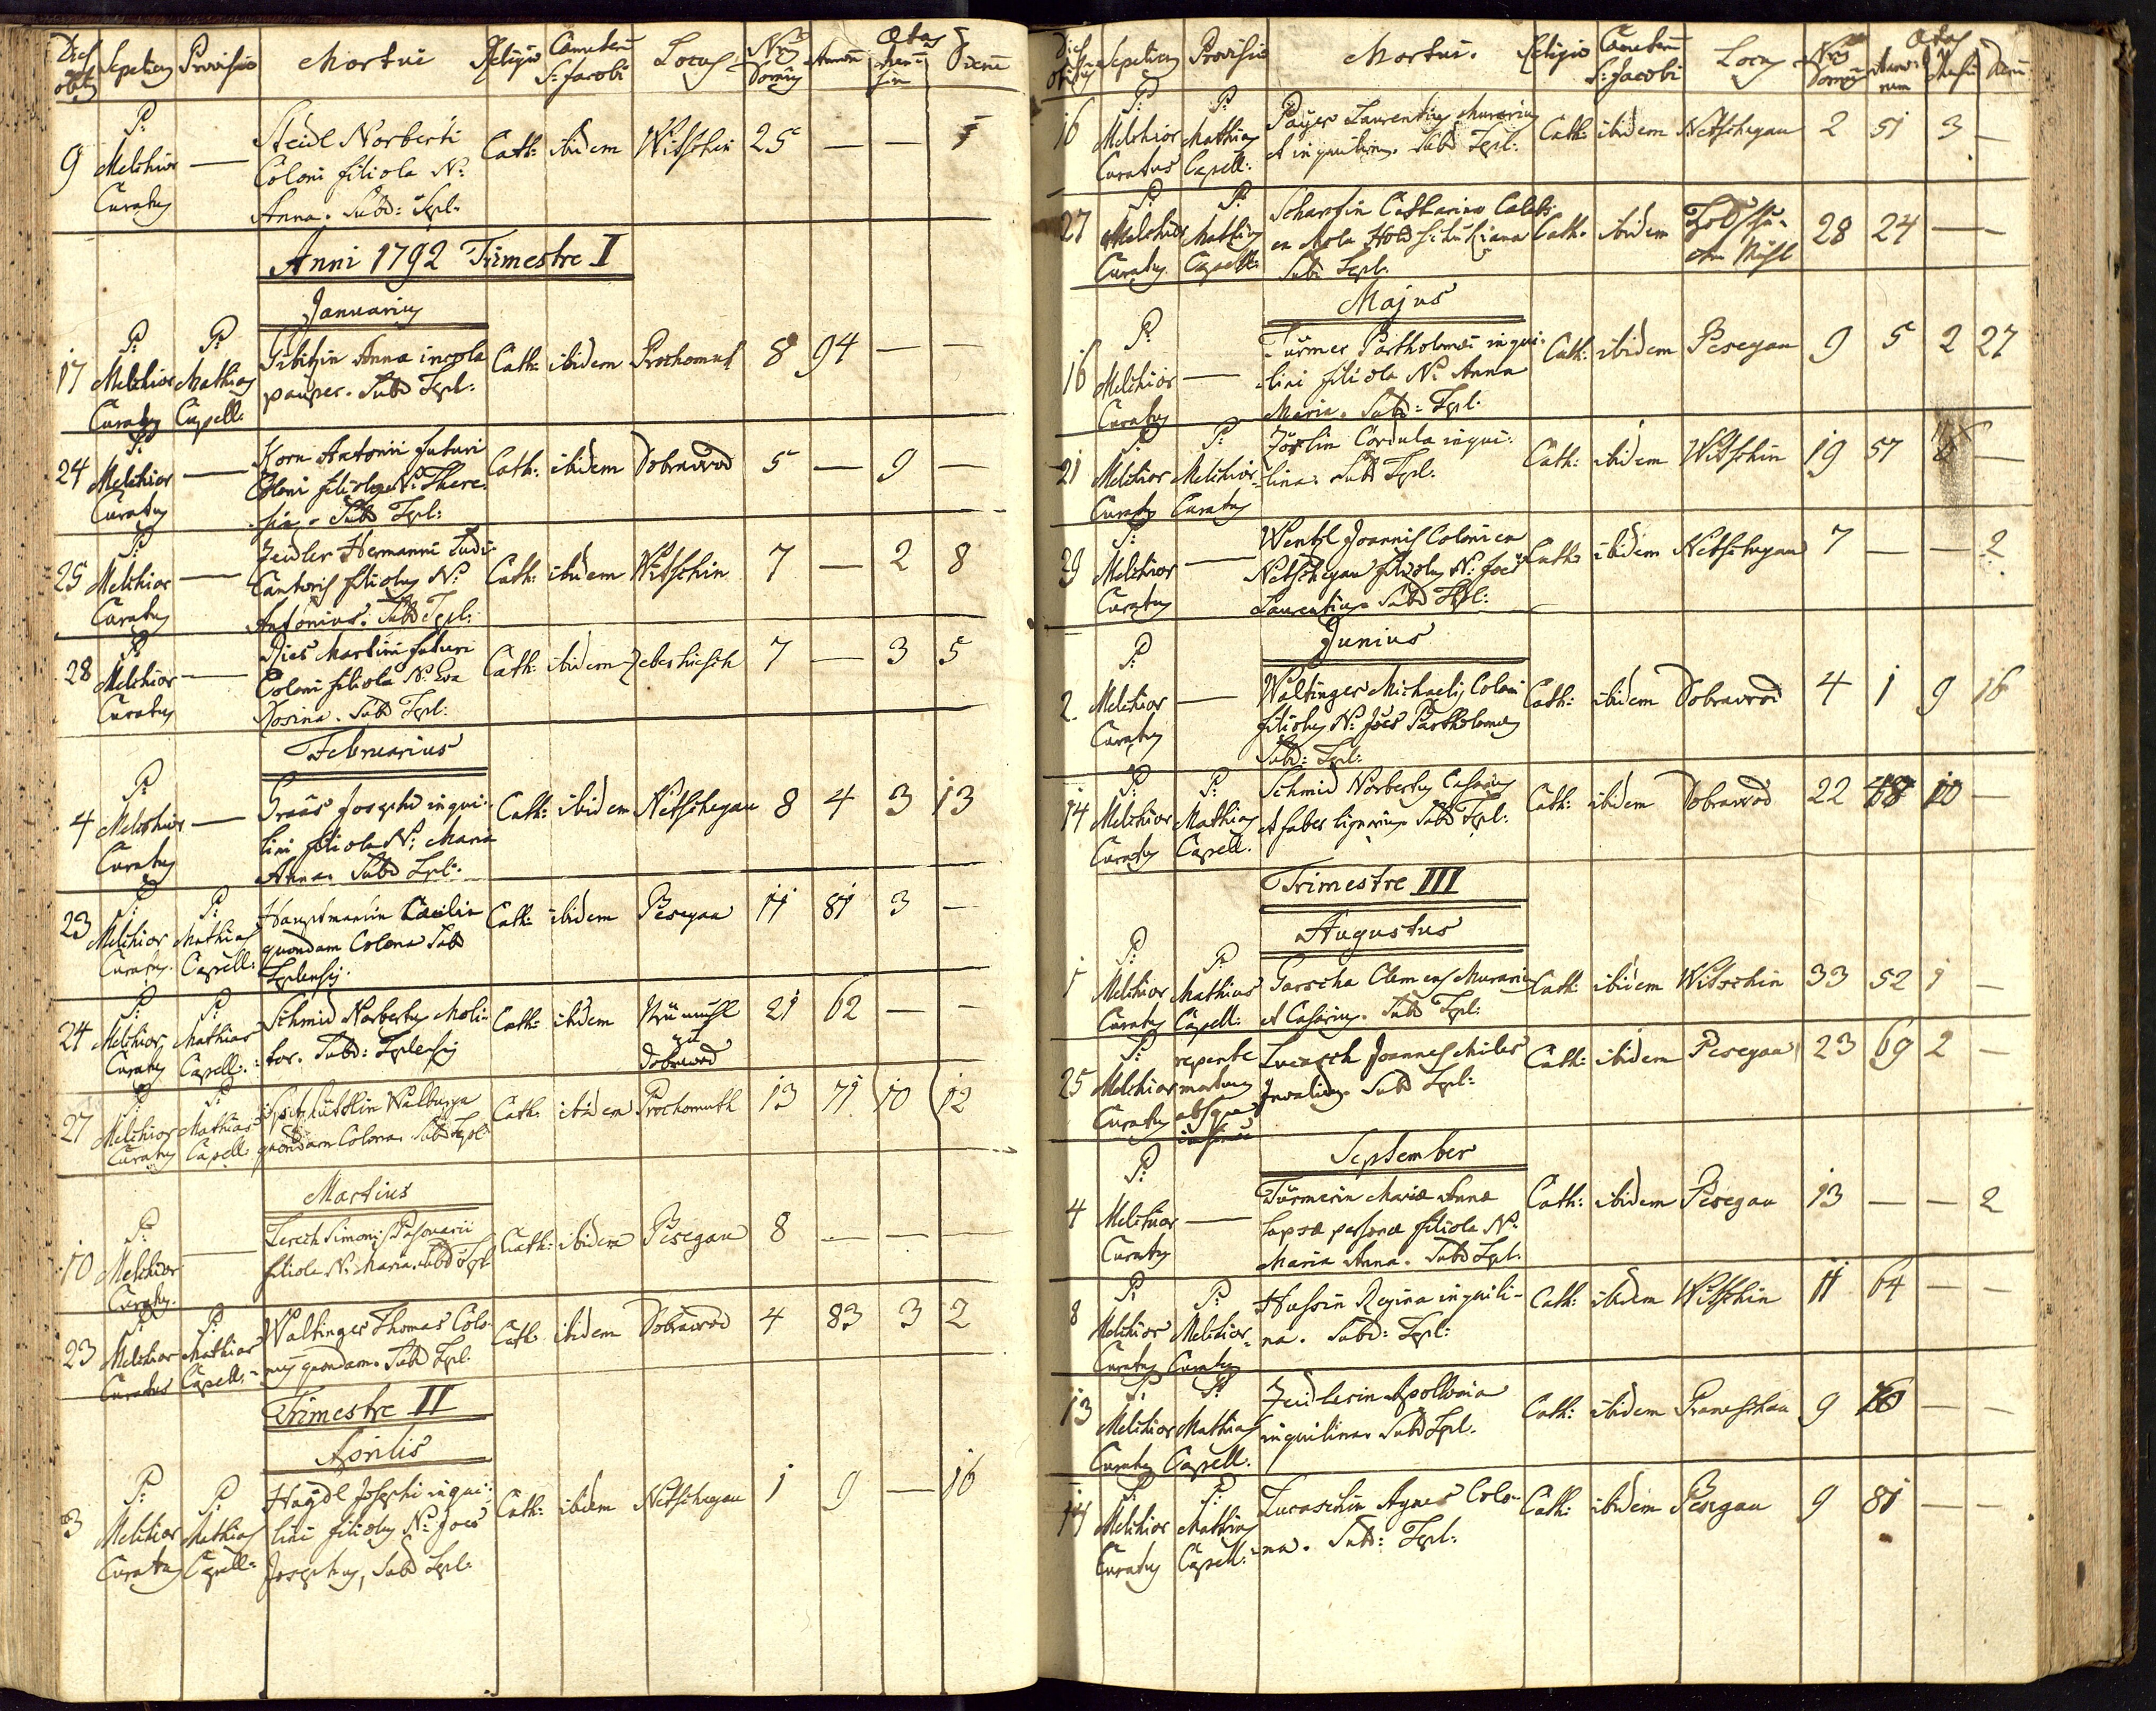 Dies obitus Sepeliens Provisio Mortui Religio Cœmeterium S: Jacobi Locus Nrus Domus Ætas Annorum Mensium Dierum
9 P: Melchior Curatus — Steidl Norberti Coloni filiola N: Anna. Subd: Tepl: Cath: ibidem Witschin 25 — —
Anni 1792 Trimestre I
Januarius
17 P: Melchior Curatus P: Mathias Capell: Anna incola pauper. Subd Tepl: Cath: ibidem Prochomuth 8 94 — —
24 P: Melchior Curatus — Korn Antonii futuri Coloni filiola N: There-sia. Subd Tepl: Cath: ibidem Dobrawod 5 — 9 —
25 P: Melchior Curatus — Zeidler Hermanni Ludi Cantoris filiolus N: Antonius. Subd Tepl: Cath: ibidem Witschin 7 — 2 8
28 P: Melchior Curatus — Ries Martini futuri Coloni filiola N: Eva Rosina. Subd Tepl: Cath: ibidem Zeberhiesch 7 — 3 5
Februarius
4 P: Melchior Curatus — Graas Josephi inqui-lini filiola N: Maria Anna. Subd Tepl: Cath: ibidem Netschegau 8 4 3 13
23 P: Melchior Curatus. P: Mathias Capell: Hauptmanin Cæcilia quondam Colona Subd Teplensis. Cath: ibidem Pesegau 11 81 3 —
24 P: Melchior Curatus P: Mathias Capell: Schmid Norbertus Moli-tor. Subd: Teplensis Cath: ibidem Neumühl zu Dobrawod 21 62 — —
27 P: Melchior Curatus P: Mathias Capell: Walburga quondam Colona. Subd Tepl: Cath: ibidem Prochomuth 13 71 10 12
Martius
10 P: Melchior Curatus. — Lerch Simonis filiola N: Maria. Subd Tepl Cath: ibidem Pesegau 8 — — —
23 P: Melchior Curatus P: Mathias Capell: Waltinger Thomas Colo-nus quondam. Subd Tepl. Cath ibidem Dobrawod 4 83 3 2
Trimestre II
Aprilis
3 P: Melchior Curatus P: Mathias Capell: Haÿdl Josephi inqui-lini filiolus N: Joes Josephus, Subd Tepl: Cath: ibidem Netschegau 1 9 — 16
Dies Obitus Sepeliens Provisio Mortui. Religio Cœmeterium S: Jacobi Locus Nrus Domus Ætas Annorum Mensium Dierum
16 P: Melchior Curatus P: Mathias Capell: Paÿer Laurentius Murarius et inquilinus. Subd Tepl: Cath: ibidem Netschegau 2 51 3 —
27 P: Melchior Curatus P: Mathias Capell: Scharfin Catharina Cælebs ex Mola Holdschükiana Subd Tepl: Cath: ibidem 28 24 — —
Majus
16 P: Melchior Curatus — Türmer Bartholomæi inqui-lini filiola N: Anna Maria. Subd: Tepl: Cath: ibidem Pesegau 9 5 2 27
21 P: Melchior Curatus P: Melchior Curatus Cordula inqui-lina. Subd Tepl: Cath: ibidem Witschin 19 57 —
P: Melchior Curatus — Wentzl Joannis Coloni ex Netschegau filiolus N: Joes Laurentius Subd Tepl: Cath: ibidem Netschegau 7 — — 2
Junius
2 P: Melchior Curatus — Waltinger Michaelis Coloni filiolus N: Joes Bartholomæus Subd: Tepl: Cath: ibidem Dobrawod 4 1 9 16
14 P: Melchior Curatus P: Mathias Capell. Schmid Norbertus Casarius et faber lignarius Subd Tepl: Cath: ibidem Dobrawod 22 10 —
Trimestre III
Augustus
1 P: Melchior Curatus P: Mathias Capell: Garscha Clemens Murarius et Casarius. Subd Tepl: Cath: ibidem Witschin 33 52 1 —
25 P: Melchior Curatus repente mortuus absque Lucasch Joannes Miles Invalidus. Subd Tepl: Cath: ibidem Pesegau 23 69 2 —
September
4 P: Melchior Curatus — Türmerin Mariæ Annæ lapsæ personæ filiola N: Maria Anna. Subd Tepl: Cath: ibidem Pesegau 13 — — 2
8 P: Melchior Curatus P: Melchior Curatus Hassin Regina inquili-na. Subd: Tepl: Cath: ibidem Witschin 11 64 — —
13 P: Melchior Curatus P: Mathias Capell. Zeidlerin Apollonia inquilina. Subd Tepl. Cath: ibidem Prameschau 9 — —
P: Melchior Curatus P: Mathias Capell: Lucaschin Agnes Colo-na. Subd: Tepl: Cath: ibidem Pesegau 9 81 — —